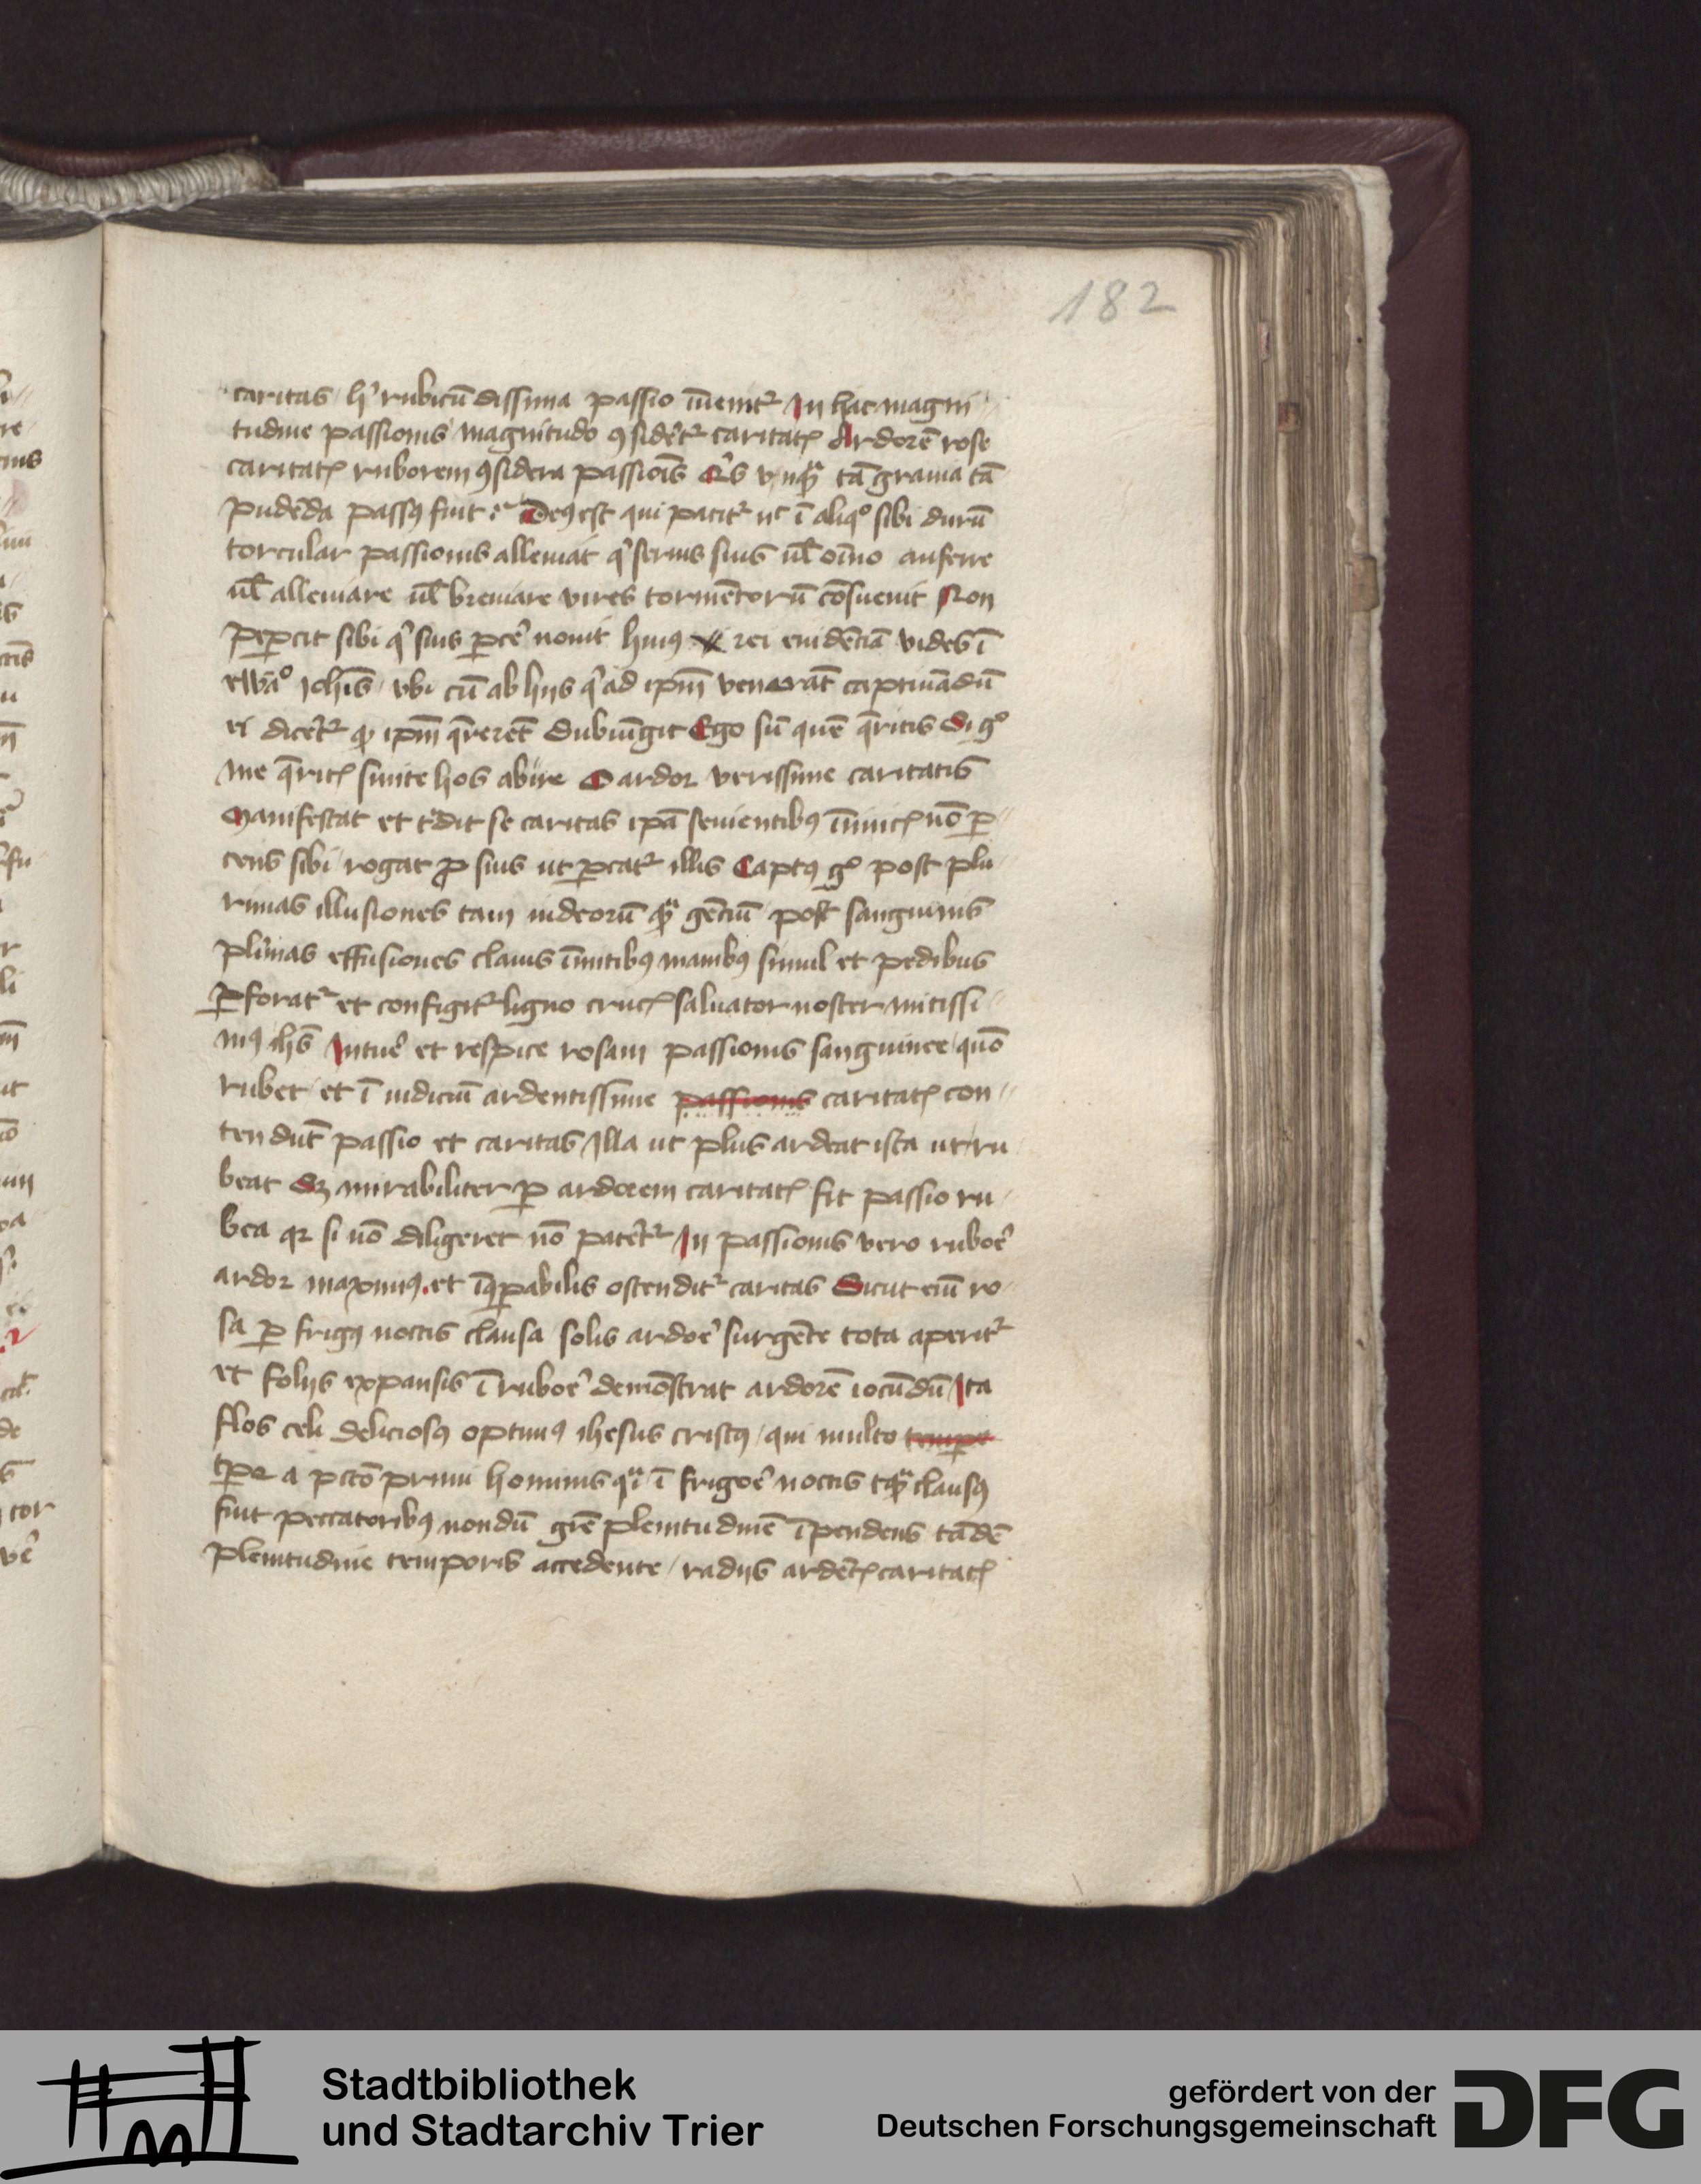 182
caritas hͥ rubicūdissima passio īuenitᷣ In hac magni
tudine passionis magnitudo ꝯsidētᷣ caritatꝭ Ardorē rose
caritatꝭ ruborem ꝯsidera passiōis Qͥs vnqᷓ tā grauia tā
pudēda passꝰ fuit Deꝰ est qui patitᷣ nͨ ī aliqͦ sibi durū
torcular passionis alleuiat qͥ seruis suis ul̄ oīno auferre
ul̄ alleuiare ul̄ breuiare vires tormētorū cōsueuit Non
peꝑcit sibi qͥ suis ꝑceͬ nouit huiꝰ rei euidēciā vides ī
ewāͦ Ioh̄is vbi cū ab hijs qͥ ad ip̄m venerāt captiuādū
ei dicēͬtᷣ ꝙ ip̄m q̄rerēt subiūgit Ego sū quē q̄ritis Si gͦ
me q̄ritꝭ sinite hos abire O ardor verissime caritatis
Manifestat et tͣdit se caritas ip̄a seuientibꝰ īimicꝭ nō ꝑ
cens sibi rogat ꝓ suis ut ꝑcatᷣ illis Captꝰ gͦ post plu
rimas illusiones tam iudeorū qᷓ gēciū post sanguinis
pͥlimas effusiones clauis īmitibꝰ manibꝰ simul et pedibus
ꝑforatᷣ et configitᷣ ligno crucꝭ saluator noster mitissi
mꝰ ih̄s Intueͬ et respice rosam passionis sanguinee quō
rubet et ī iudiciū ardentissime passionis caritatꝭ con
tendūt passio et caritas Illa ut plus ardeat ista ut ru
beat Sꝫ mirabiliter ꝑ ardorem caritatꝭ fit passio ru
bea qꝛ si nō diligeret nō patēͬtᷣ In passionis vero ruboͬe
ardor maximꝰ et īꝯꝑabilis ostenditᷣ caritas Sicut eniͫ ro
sa ꝑ frigꝰ noctis clausa solis ardoͬe surgēte tota aperitᷣ
et folijs expansis ī ruboͬe demōstrat ardorē iocūdū Ita
flos celi deliciosꝰ optimꝰ ihesus cristꝰ qui multo tempe
tꝑe a pctō primi hominis qͣi ī frigoͬe noctis tqᷓ clausꝰ
fuit peccatoribꝰ nondū grē plenitudinē īpendens tādē
plenitudine temporis accedente radijs ardētꝭ caritatꝭ
Stadtbibliothek
und Stadtarchiv Trier
gefördert von der
Deutschen Forschungsgemeinschaft
DFG